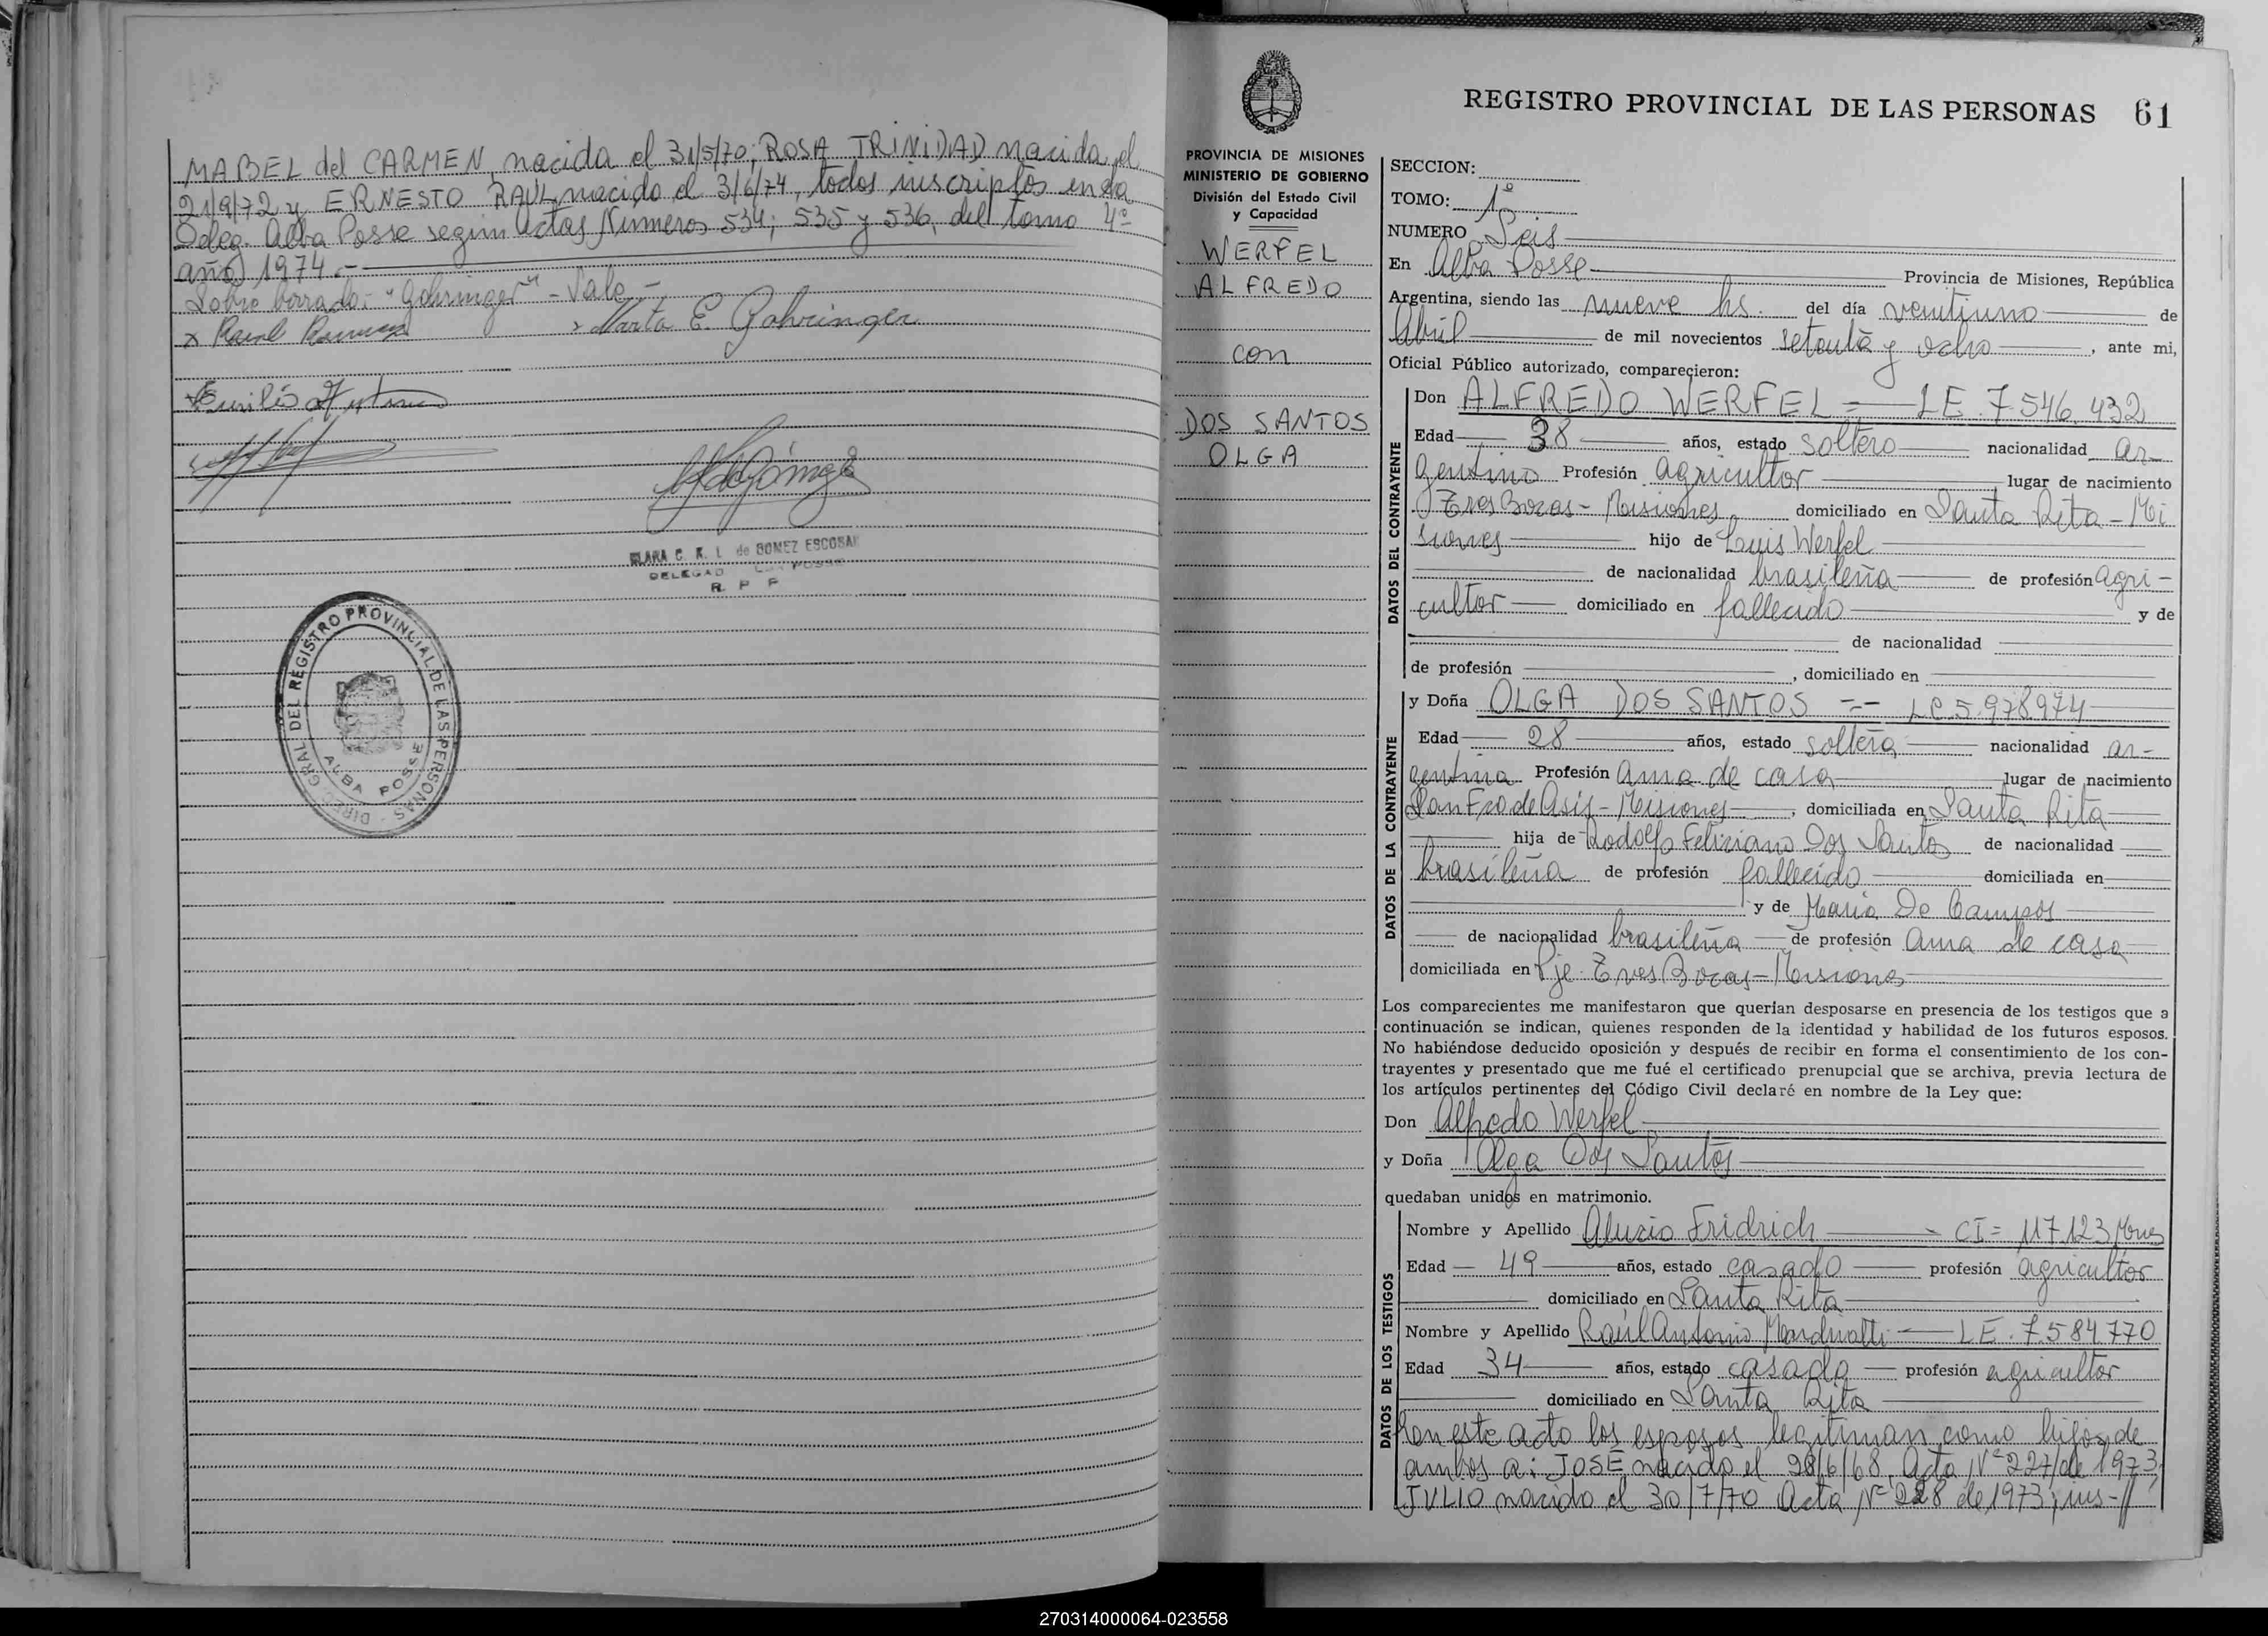 MABEL del CARMEN, nacida el 31/5/70; ROSA TRINIDAD nacida el
21/9/72 y ERNESTO RAUL nacido el 3/6/74, todos inscriptos en la
Deleg. Alba Posse segun Actas Números 534; 535 y 536, del tomo 4º
año 1974.-
Sobre borrado: "Gohringer" - Vale -
x Marta E. Gohringer
CLARA C. K. L. de GOMEZ ESCOBAR
R. P. P
DIREC. GRAL. DEL REGISTRO PROVINCIAL DE LAS PERSONAS -
ALBA POSSE
REGISTRO PROVINCIAL DE LAS PERSONAS 61
PROVINCIA DE MISIONES
MINISTERIO DE GOBIERNO
División del Estado Civil
y Capacidad
WERFEL
ALFREDO
con
DOS SANTOS
OLGA
SECCION:
TOMO: 1º
NUMERO Seis
En Alba Posse Provincia de Misiones, República
Argentina, siendo las nueve hs. del día veintiuno de
Abril de mil novecientos setenta y ocho, ante mi,
Oficial Público autorizado, comparecieron:
DATOS DEL CONTRAYENTE
Don ALFREDO WERFEL = LE. 7.546.432
Edad 38 años, estado soltero nacionalidad ar-
gentino Profesión agricultor lugar de nacimiento
Tres Bocas - Misiones domiciliado en Santa Rita - Mi
siones hijo de Luis Werfel
de nacionalidad brasileña de profesión agri-
cultor domiciliado en fallecido y de
de nacionalidad
de profesión , domiciliado en
DATOS DE LA CONTRAYENTE
y Doña OLGA DOS SANTOS = LC 5.978.974
Edad 28 años, estado soltera nacionalidad ar-
gentina Profesión ama de casa lugar de nacimiento
San Fco de Asís - Misiones, domiciliada en Santa Rita
hija de Rodolfo Feliciano Dos Santos de nacionalidad
brasileña de profesión fallecido domiciliada en
y de Maria De Campos
de nacionalidad brasileña de profesión ama de casa
domiciliada en Pje. Tres Bocas - Misiones
Los comparecientes me manifestaron que querían desposarse en presencia de los testigos que a
continuación se indican, quienes responden de la identidad y habilidad de los futuros esposos.
No habiéndose deducido oposición y después de recibir en forma el consentimiento de los con-
trayentes y presentado que me fué el certificado prenupcial que se archiva, previa lectura de
los artículos pertinentes del Código Civil declaré en nombre de la Ley que:
Don Alfredo Werfel
y Doña Olga Dos Santos
quedaban unidos en matrimonio.
DATOS DE LOS TESTIGOS
Nombre y Apellido Alucio Fridrich - CI = 117.123 Mnes
Edad 49 años, estado casado profesión agricultor
domiciliado en Santa Rita
Nombre y Apellido Raúl Antonio LE. 7.584.770
Edad 34 años, estado casado profesión agricultor
domiciliado en Santa Rita
En este acto los esposos legitiman como hijos de
ambos a: JOSÉ nacido el 28/6/68, Acta Nº 227/de 1973,
JULIO nacido el 30/7/70 Acta Nº 228 de 1973; ins-//
270314000064-023558